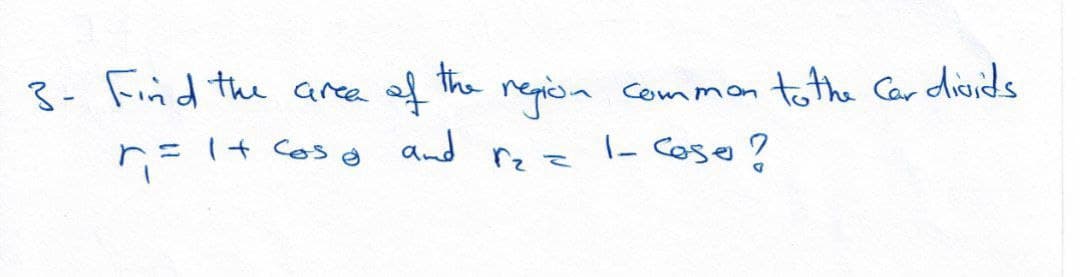 3- Find the area of the region common to the Cardioids
r₁ = 1 + cos θ and r₂ = 1 - cos θ ?